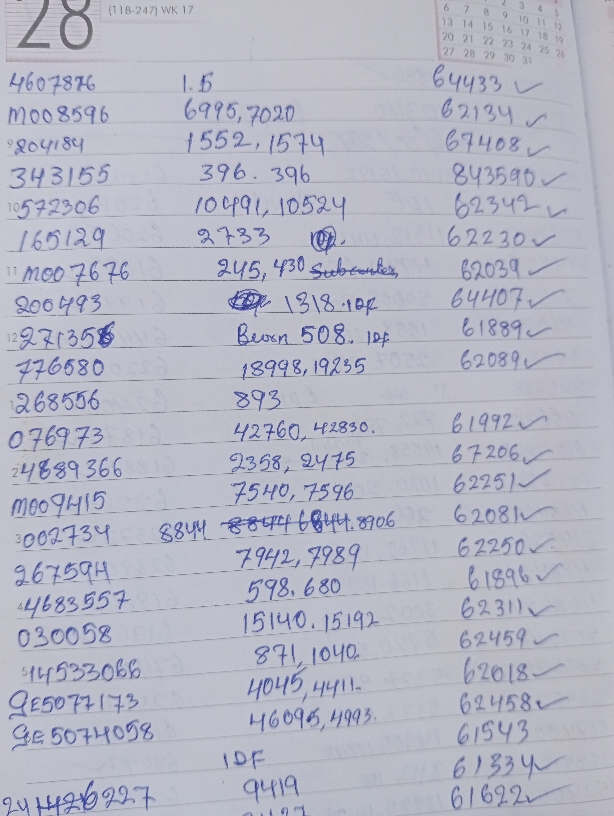 28 (118-247) WK 17
6 7 8 9 10 11 12
13 14 15 16 17 18 19
20 21 22 23 24 25 26
27 28 29 30 31
4607876 1.5 64433 ✓
M008596 6995,7020 62134 ✓
9 204184 1552, 1574 67408 ✓
343155 396. 396 843590 ✓
10 572306 10491, 10524 62342 ✓
165129 2733 62230 ✓
11 M007676 245, 430 62039 ✓
200493 1318.IDF 64407 ✓
12 271356 508. IDF 61889 ✓
776580 18998,19235 62089 ✓
1 268556 893
076973 42760, 42830. 61992 ✓
2 4889366 2358, 2475 67206 ✓
M009415 7540, 7596 62251 ✓
3 002734 8844 8906 62081 ✓
267594 7942, 7989 62250 ✓
4 4683557 598. 680 61896 ✓
030058 15140. 15192 62311 ✓
5 14533066 871, 1040 62459 ✓
GE5077173 4045, 4411. 62018 ✓
GE5074058 46095, 4993. 62458 ✓
IDF 61543
9419 61334 ✓
61622 ✓